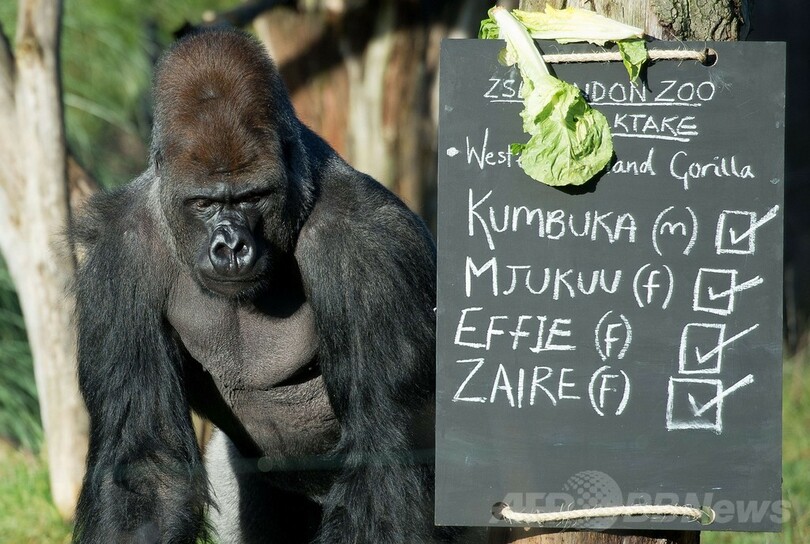 ZSL LONDON ZOO
KTAKE
• West and Gorilla
KUMBUKA (m)
MJUKUU (f)
EFFIE (F)
ZAIRE (F)
AFPBBNews